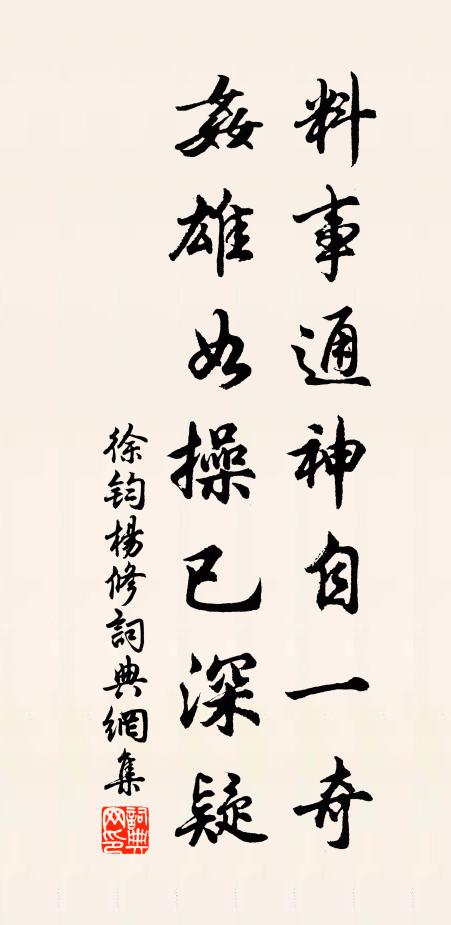 料事通神自一奇
姦雄如操已深疑
徐鈞楊修詞典網集
詞典網印